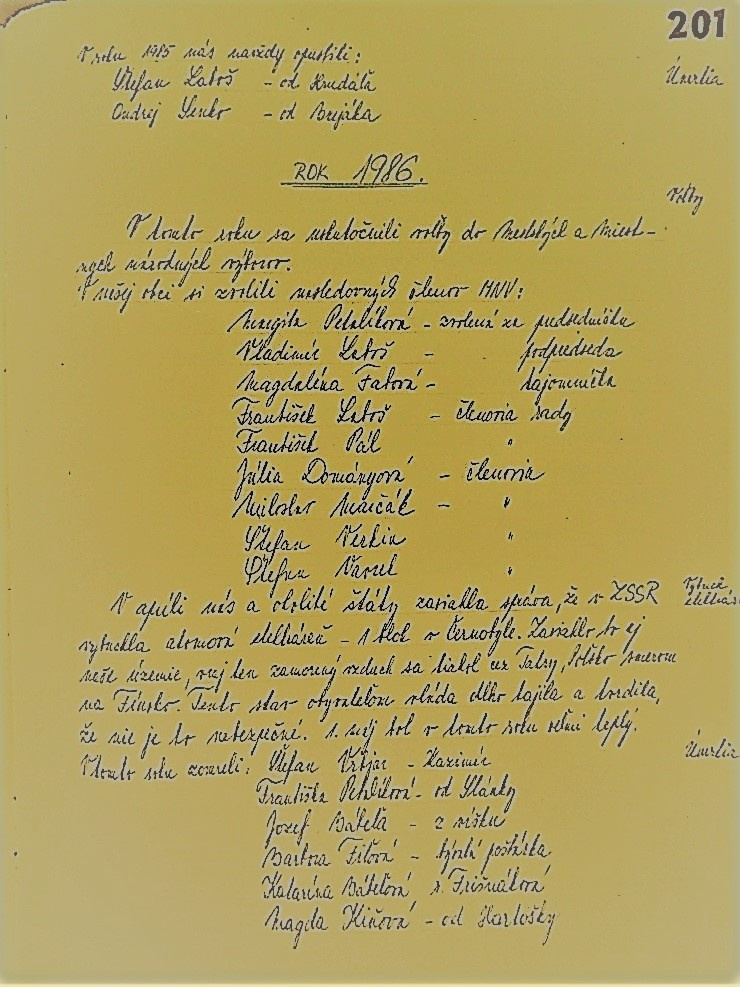 201
V roku 1985 nás navždy opustili:
Štefan Laboš - od
Úmrtia
Ondrej Senko - od Brejáka
ROK 1986.
Voľby
V tomto roku sa uskutočnili voľby do Mestských a Miest-
nych národných výborov.
V našej obci si zvolili nasledovných členov MNV:
Margita Petrlíková - zvolená za predsedníčku
Vladimír Laboš - podpredseda
Magdaléna Faťová - tajomníčka
František Laboš - členovia rady
František Pál "
Júlia Dományová - členovia
Miloslav Marčák - "
Štefan Verkin "
Štefan "
V apríli nás a okolité štáty zasiahla správa, že v ZSSR
Výbuch
elektrár
vybuchla atomová elektráreň - 1 blok v Černobyle. Zasiahlo to aj
naše územie, ten zamorený vzduch sa tiahol cez Tatry, Poľsko smerom
na Fínsko. Tento stav obyvateľom vláda dlho tajila a tvrdila,
že nie je to nebezpečné. 1. máj bol v tomto roku veľmi teplý.
Úmrtia
V tomto roku zomreli: Štefan - Kazimír
Františka Petrlíková - od Slánky
Jozef Báteľa - z víšku
Barbora Fiľová - bývalá poštárka
Katarína Báteľová r. Frišnáková
Magda Kiňová - od